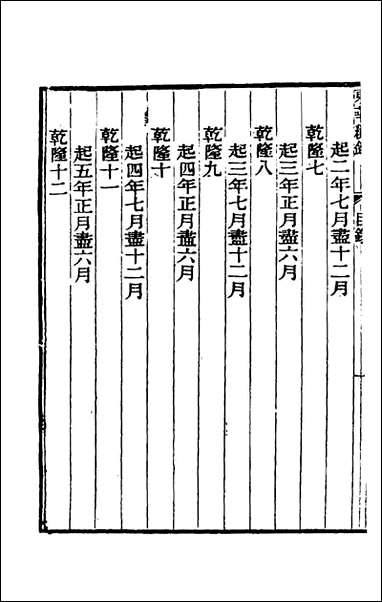 目錄
起二年七月盡十二月
乾隆七
起三年正月盡六月
乾隆八
起三年七月盡十二月
乾隆九
起四年正月盡六月
乾隆十
起四年七月盡十二月
乾隆十一
起五年正月盡六月
乾隆十二